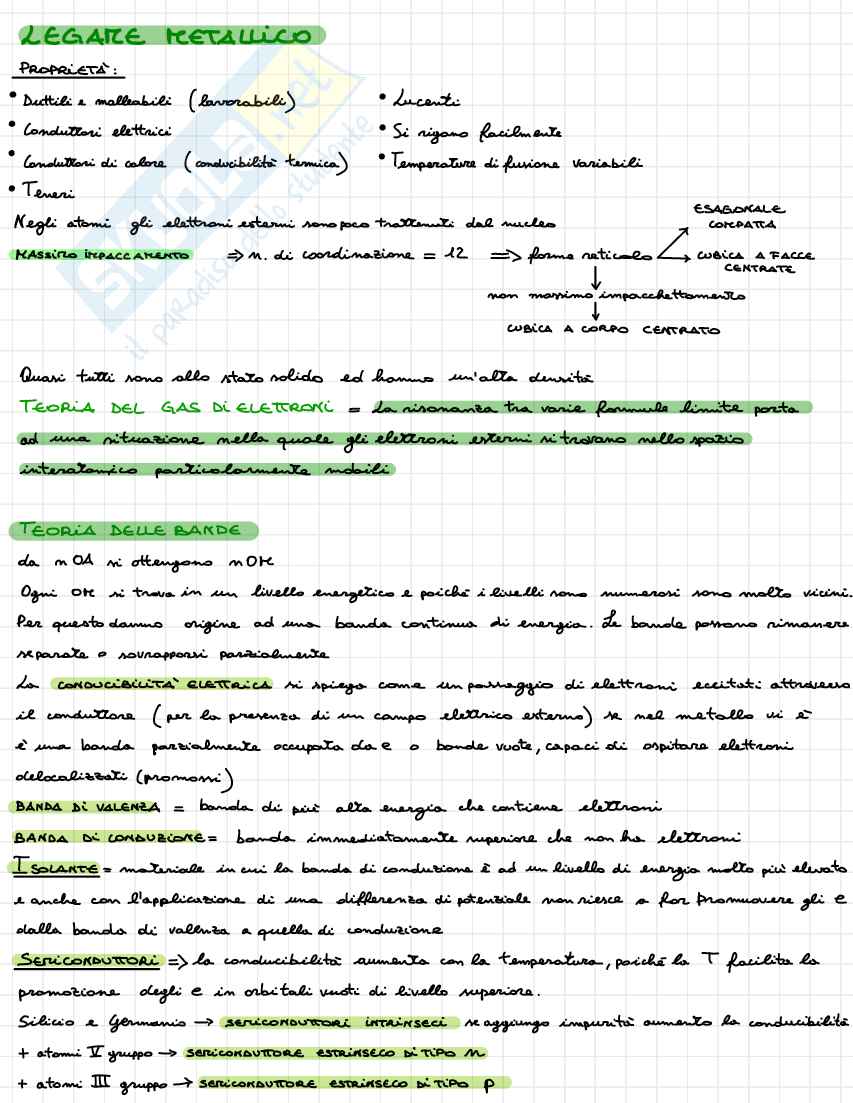 LEGAME METALLICO
PROPRIETÀ:
• Duttili e malleabili (lavorabili)
• Conduttori elettrici
• Conduttori di calore (conducibilità termica)
• Teneri
• Lucenti
• Si rigano facilmente
• Temperature di fusione variabili
Negli atomi gli elettroni esterni sono poco trattenuti dal nucleo
MASSIMO IMPACCAMENTO => n. di coordinazione = 12 => forma reticolo
ESAGONALE
COMPATTA
CUBICA A FACCE
CENTRATE
non massimo impacchettamento
CUBICA A CORPO CENTRATO
Quasi tutti sono allo stato solido ed hanno un'alta densità
TEORIA DEL GAS DI ELETTRONI = La risonanza tra varie formule limite porta
ad una situazione nella quale gli elettroni esterni si trovano nello spazio
interatomico particolarmente mobili
TEORIA DELLE BANDE
da n OA si ottengono n OM
Ogni OM si trova in un livello energetico e poiché i livelli sono numerosi sono molto vicini.
Per questo danno origine ad una banda continua di energia. Le bande possono rimanere
separate o sovrapporsi parzialmente
La CONDUCIBILITÀ ELETTRICA si spiega come un passaggio di elettroni eccitati attraverso
il conduttore (per la presenza di un campo elettrico esterno) se nel metallo vi è
è una banda parzialmente occupata da e o bande vuote, capaci di ospitare elettroni
delocalizzati (promossi)
BANDA DI VALENZA = banda di più alta energia che contiene elettroni
BANDA DI CONDUZIONE = banda immediatamente superiore che non ha elettroni
ISOLANTE = materiale in cui la banda di conduzione è ad un livello di energia molto più elevato
e anche con l'applicazione di una differenza di potenziale non riesce a far promuovere gli e
dalla banda di valenza a quella di conduzione
SEMICONDUTTORI => la conducibilità aumenta con la temperatura, poiché la T facilita la
promozione degli e in orbitali vuoti di livello superiore.
Silicio e Germanio → SEMICONDUTTORI INTRINSECI se aggiungo impurità aumento la conducibilità
+ atomi V gruppo → SEMICONDUTTORE ESTRINSECO DI TIPO n
+ atomi III gruppo → SEMICONDUTTORE ESTRINSECO DI TIPO p
SKUOLA.net
il paradiso dello studente